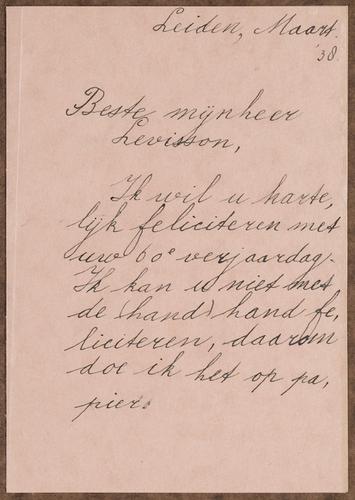 Leiden, Maart.
'38.
Beste mijnheer
Levisson,
Ik wil u harte,
lijk feliciteren met
uw 60e verjaardag.
Ik kan u niet met
de (hand) hand fe,
liciteren, daarom
doe ik het op pa,
pier.